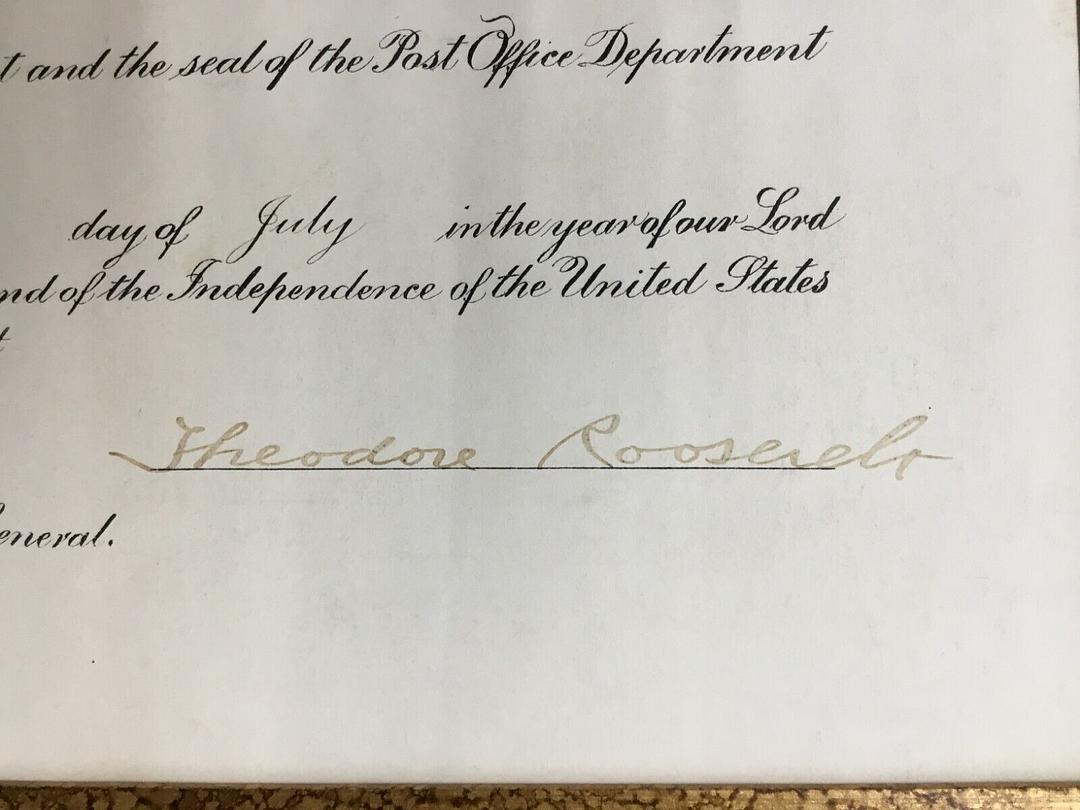 t and the seal of the Post Office Department
day of July in the year of our Lord
nd of the Independence of the United States
t
Theodore Roosevelt
eneral.